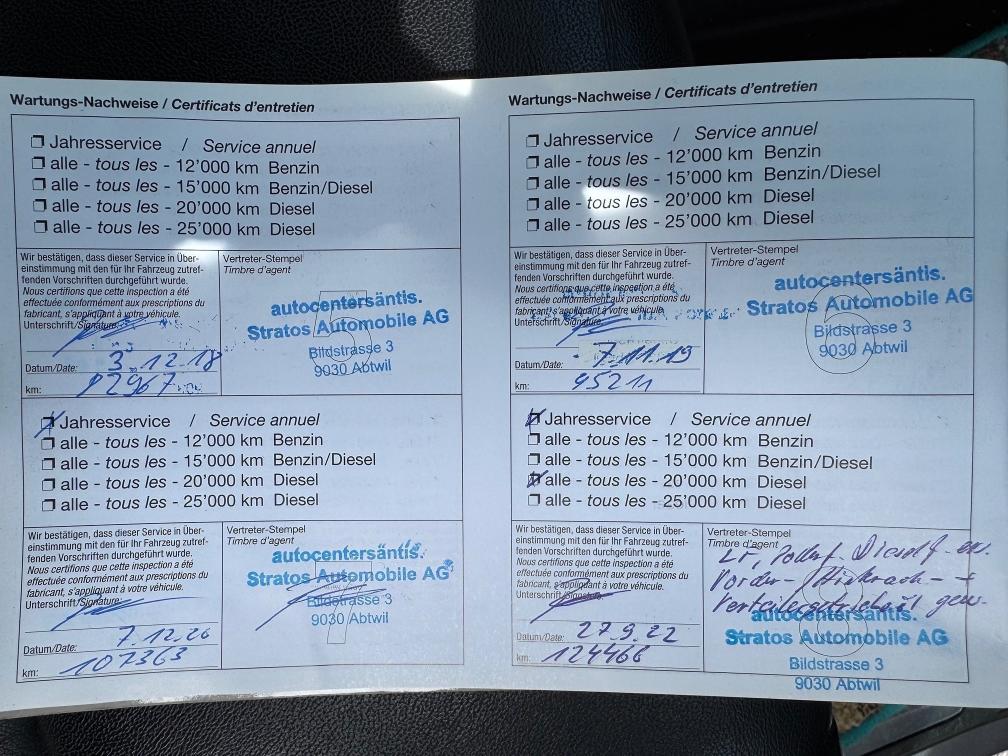 Wartungs-Nachweise / Certificats d'entretien
Jahresservice / Service annuel
alle - tous les - 12'000 km Benzin
alle - tous les - 15'000 km Benzin/Diesel
alle - tous les - 20'000 km Diesel
alle - tous les - 25'000 km Diesel
Wir bestätigen, dass dieser Service in Über-
einstimmung mit den für Ihr Fahrzeug zutref-
fenden Vorschriften durchgeführt wurde.
Nous certifions que cette inspection a été
effectuée conformément aux prescriptions du
fabricant, s'appliquant à votre véhicule.
Unterschrift/Signature:
Datum/Date: 3.12.18
km: 82967
Vertreter-Stempel
Timbre d'agent
autocentersäntis.
Stratos Automobile AG
Bildstrasse 3
9030 Abtwil
Jahresservice / Service annuel
alle - tous les - 12'000 km Benzin
alle - tous les - 15'000 km Benzin/Diesel
alle - tous les - 20'000 km Diesel
alle - tous les - 25'000 km Diesel
Wir bestätigen, dass dieser Service in Über-
einstimmung mit den für Ihr Fahrzeug zutref-
fenden Vorschriften durchgeführt wurde.
Nous certifions que cette inspection a été
effectuée conformément aux prescriptions du
fabricant, s'appliquant à votre véhicule.
Unterschrift/Signature:
Datum/Date: 7.12.20
km: 107363
Vertreter-Stempel
Timbre d'agent
autocentersäntis.
Stratos Automobile AG
Bildstrasse 3
9030 Abtwil
Wartungs-Nachweise / Certificats d'entretien
Jahresservice / Service annuel
alle - tous les - 12'000 km Benzin
alle - tous les - 15'000 km Benzin/Diesel
alle - tous les - 20'000 km Diesel
alle - tous les - 25'000 km Diesel
Wir bestätigen, dass dieser Service in Über-
einstimmung mit den für Ihr Fahrzeug zutref-
fenden Vorschriften durchgeführt wurde.
Nous certifions que cette inspection a été
effectuée conformément aux prescriptions du
fabricant, s'appliquant à votre véhicule.
Unterschrift/Signature:
Datum/Date: 7.11.19
km: 95211
Vertreter-Stempel
Timbre d'agent
autocentersäntis.
Stratos Automobile AG
Bildstrasse 3
9030 Abtwil
Jahresservice / Service annuel
alle - tous les - 12'000 km Benzin
alle - tous les - 15'000 km Benzin/Diesel
alle - tous les - 20'000 km Diesel
alle - tous les - 25'000 km Diesel
Wir bestätigen, dass dieser Service in Über-
einstimmung mit den für Ihr Fahrzeug zutref-
fenden Vorschriften durchgeführt wurde.
Nous certifions que cette inspection a été
effectuée conformément aux prescriptions du
fabricant, s'appliquant à votre véhicule.
Unterschrift/Signature:
Datum/Date: 27.9.22
km: 124466
Vertreter-Stempel
Timbre d'agent
autocentersäntis.
Stratos Automobile AG
Bildstrasse 3
9030 Abtwil